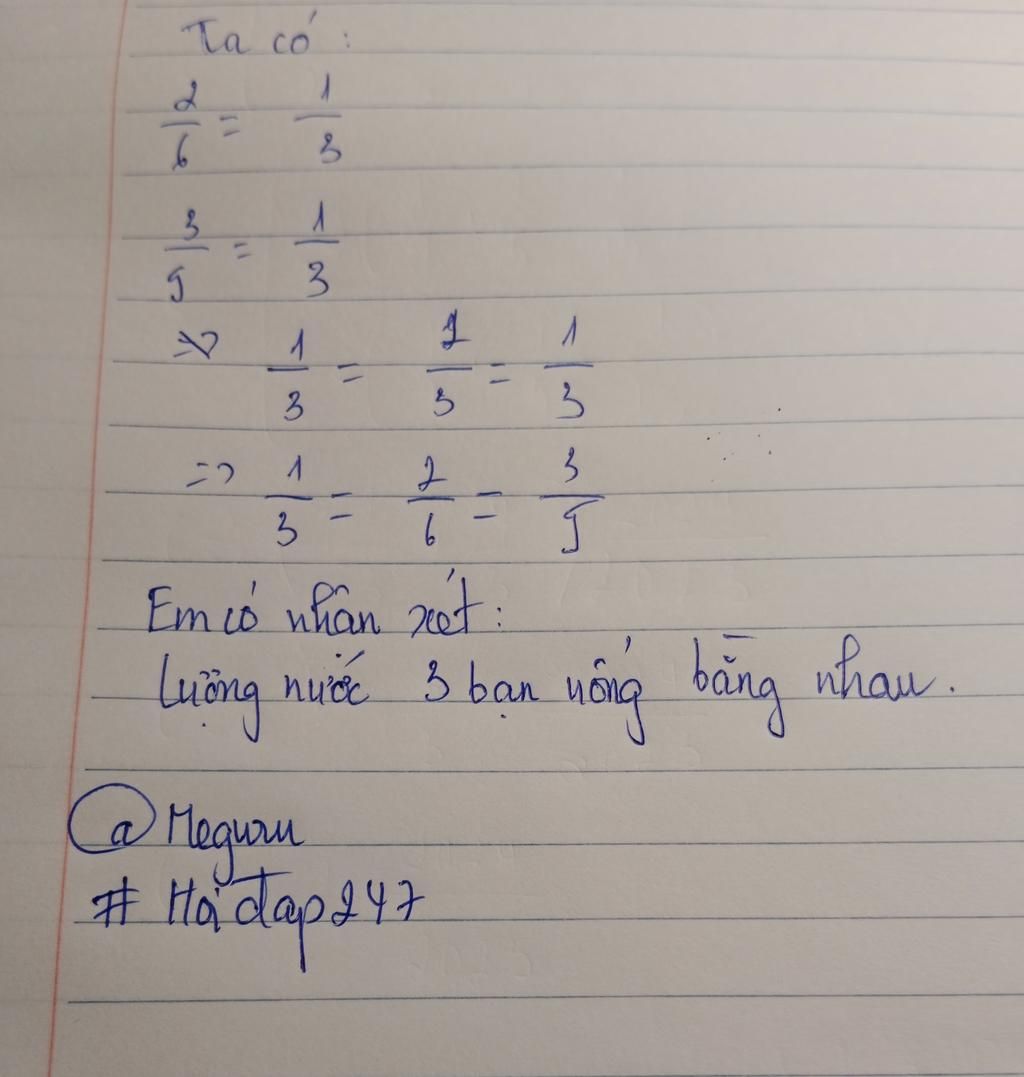 Ta có:
2/6 = 1/3
3/9 = 1/3
=> 1/3 = 1/3 = 1/3
=> 1/3 = 2/6 = 3/9
Em có nhân xét:
Lượng nước 3 bạn uống bằng nhau.
@Meguru
# Hỏi đap247